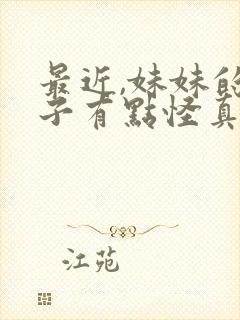 最近,妹妹的
子有點怪真
江苑